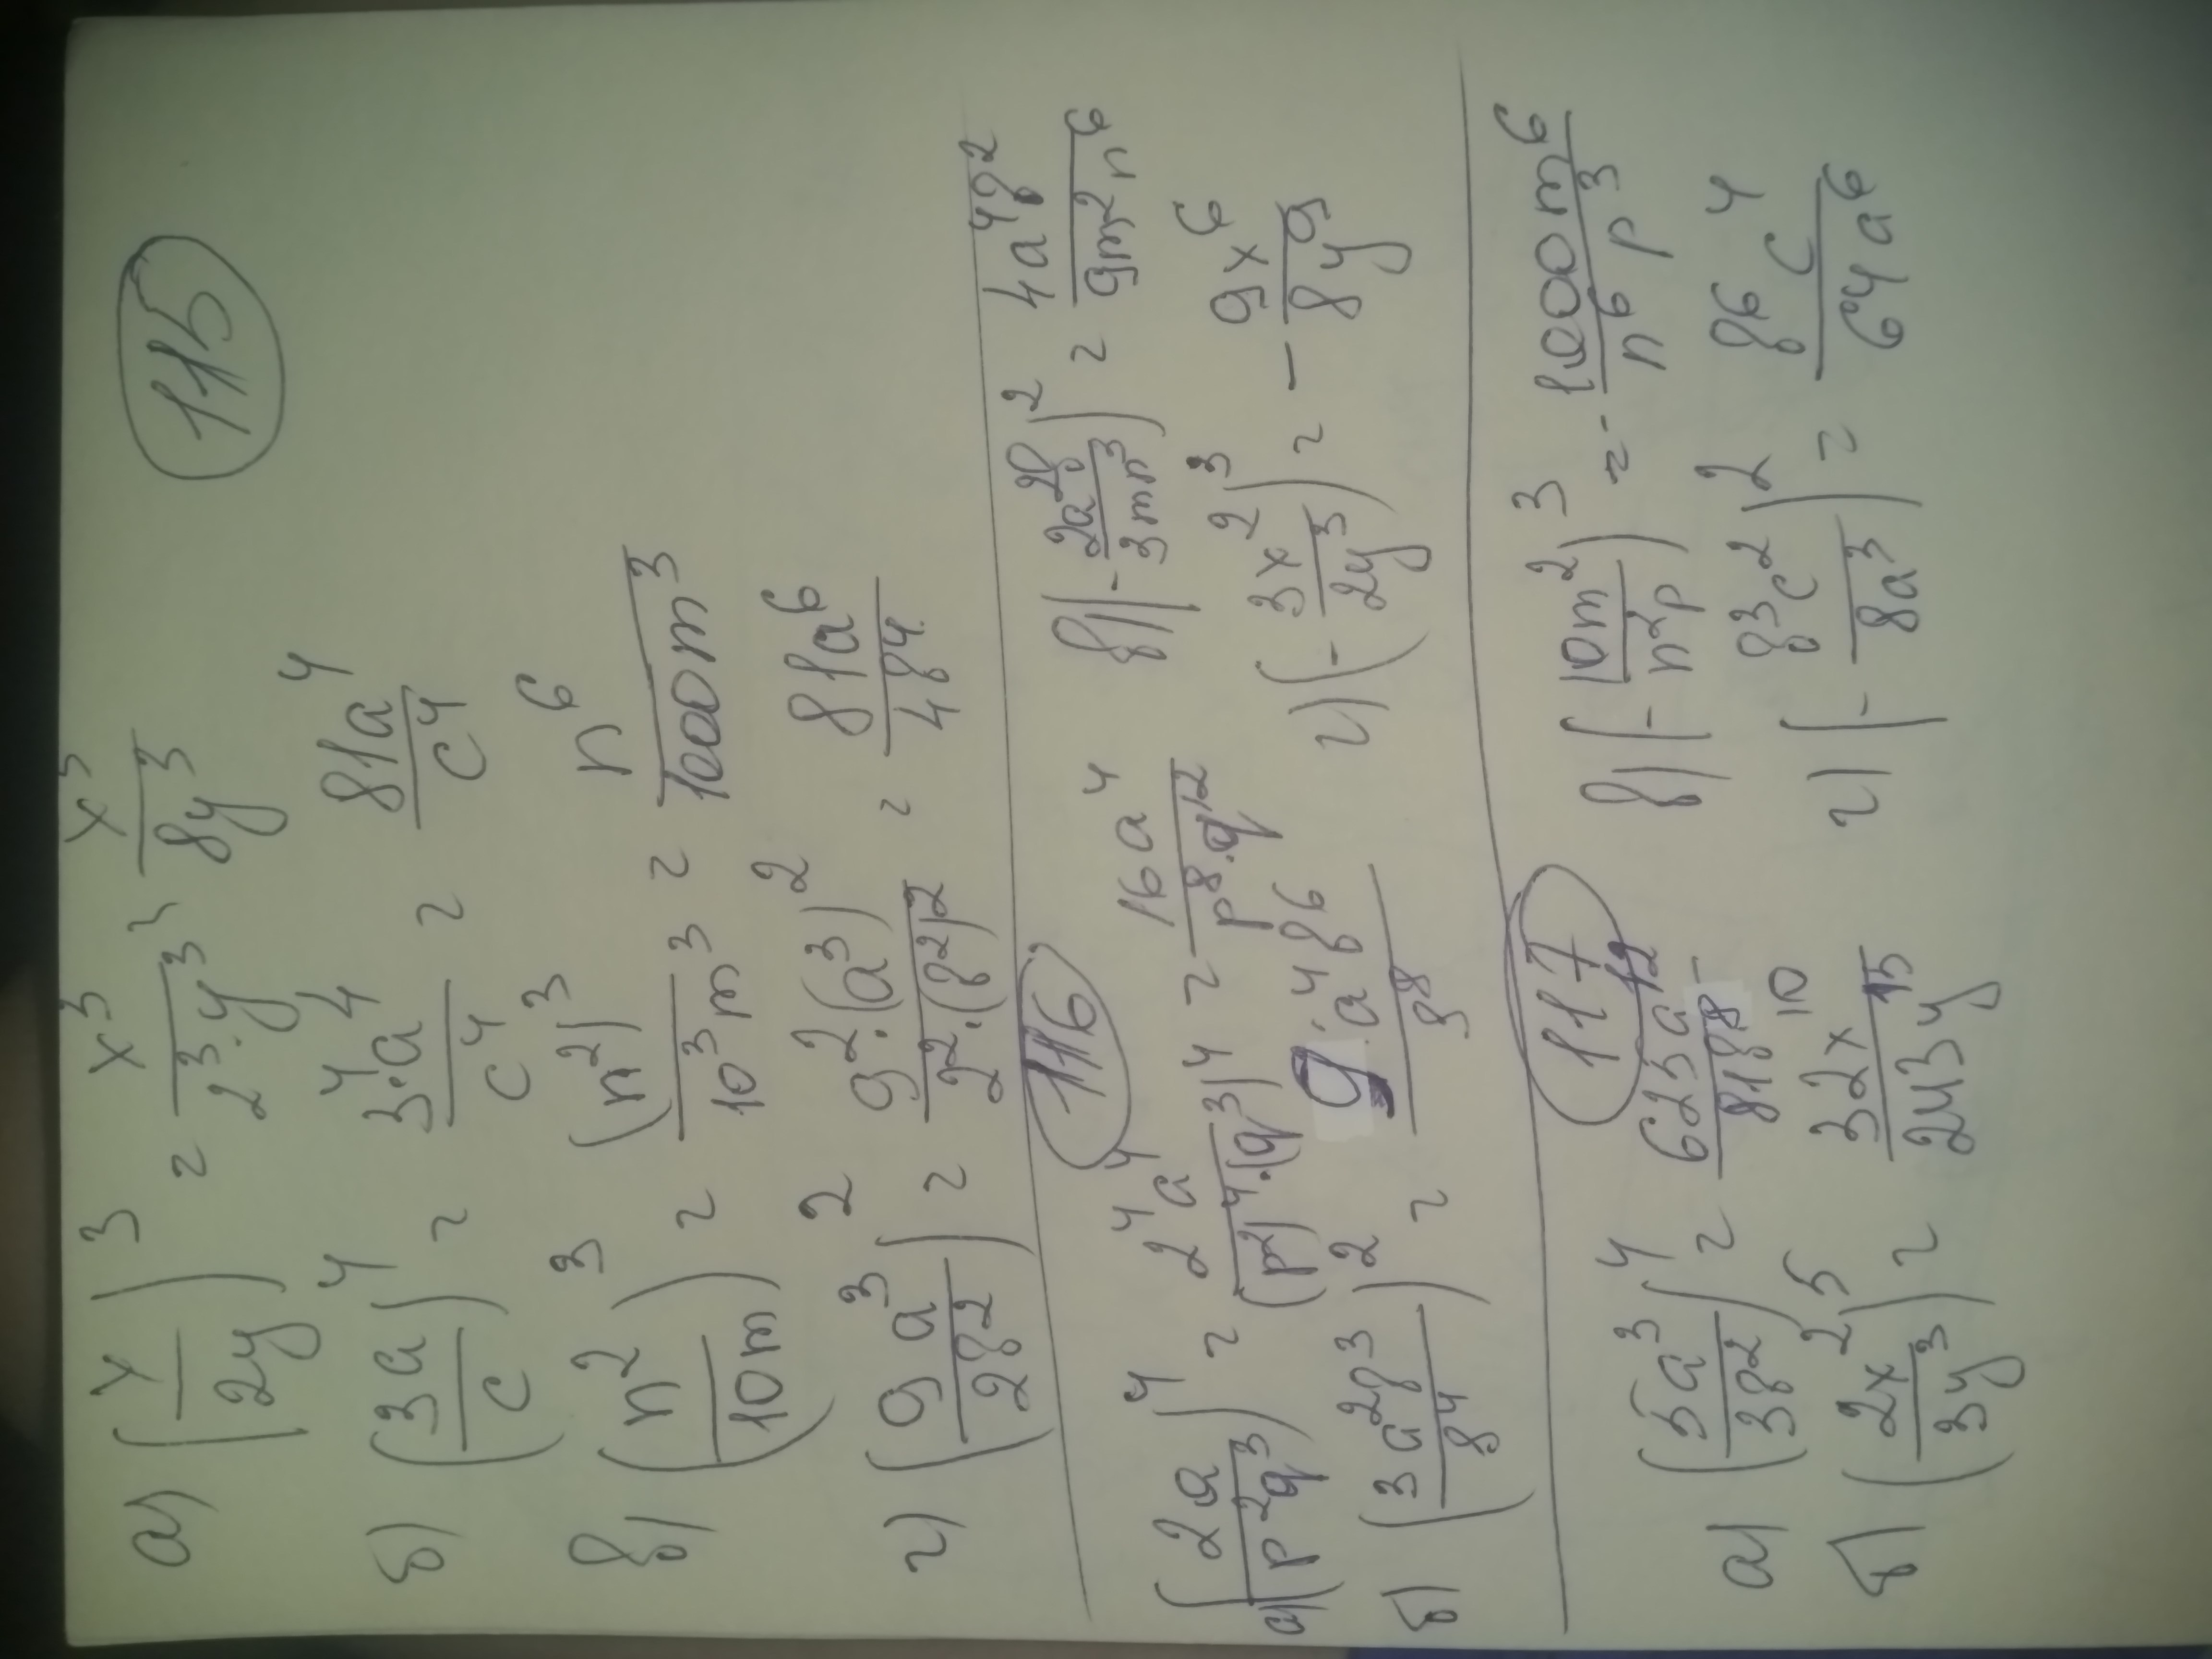 115
а) (x/2y)³ = x³/2³·y³ = x³/8y³
б) (3a/c)⁴ = 3⁴·a⁴/c⁴ = 81a⁴/c⁴
в) (n²/10m)³ = (n²)³/10³m³ = n⁶/1000m³
г) (9a³/2b²)² = 9²·(a³)²/2²·(b²)² = 81a⁶/4b⁴
116
а) (2a/p²q³)⁴ = 2⁴a⁴/(p²)⁴·(q³)⁴ = 16a⁴/p⁸·q¹²
б) (3a²b³/b⁴)² = 9·a⁴b⁶/b⁸
в) (-2a²b/3mn³)² = 4a⁴b²/9m²n⁶
г) (-3x²/2y³)³ = -9x⁶/8y⁹
117
а) (5a³/3b²)⁴ = 625a¹²/81b⁸
б) (2x²/3y³)⁵ = 32x¹⁰/243y¹⁵
в) (-10m²/n²p)³ = -1000m⁶/n⁶p³
г) (-b³c²/8a³)² = b⁶c⁴/64a⁶